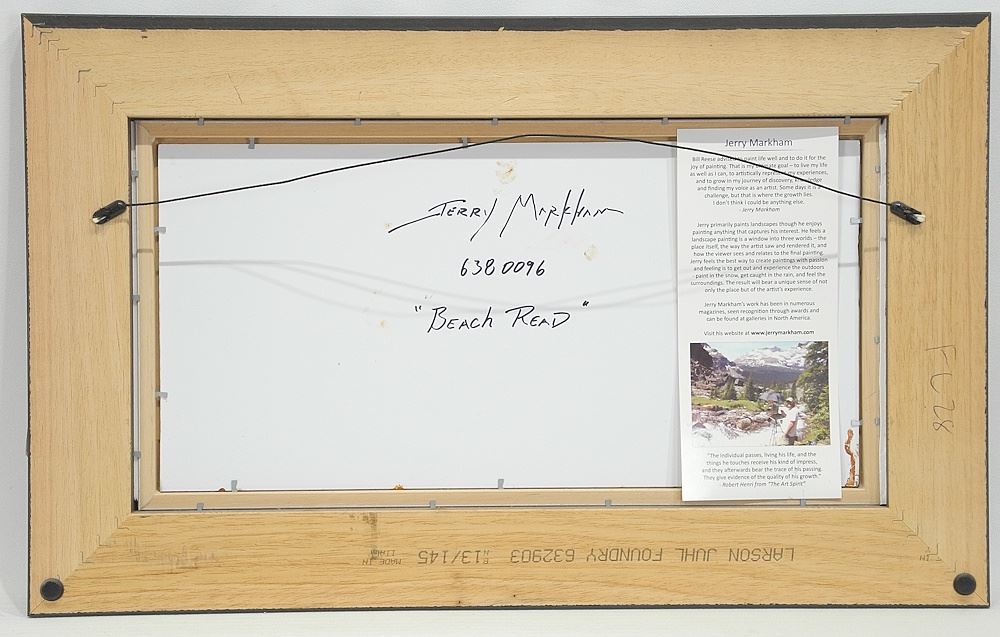 Jerry Markham
Bill Reese advised to paint life well and to do it for the
joy of painting. That is my ultimate goal – to live my life
as well as I can, to artistically represent my experiences,
and to grow in my journey of discovery, knowledge
and finding my voice as an artist. Some days it is a
challenge, but that is where the growth lies.
I don't think I could be anything else.
- Jerry Markham
Jerry primarily paints landscapes though he enjoys
painting anything that captures his interest. He feels a
landscape painting is a window into three worlds – the
place itself, the way the artist saw and rendered it, and
how the viewer sees and relates to the final painting.
Jerry feels the best way to create paintings with passion
and feeling is to get out and experience the outdoors
- paint in the snow, get caught in the rain, and feel the
surroundings. The result will bear a unique sense of not
only the place but of the artist's experience.
Jerry Markham's work has been in numerous
magazines, seen recognition through awards and
can be found at galleries in North America.
Visit his website at www.jerrymarkham.com
"The individual passes, living his life, and the
things he touches receive his kind of impress,
and they afterwards bear the trace of his passing.
They give evidence of the quality of his growth."
- Robert Henri from "The Art Spirit"
JERRY MARKHAM
6380096
"BEACH READ"
FU28
LARSON JUHL FOUNDRY 632903
13/145
MADE IN